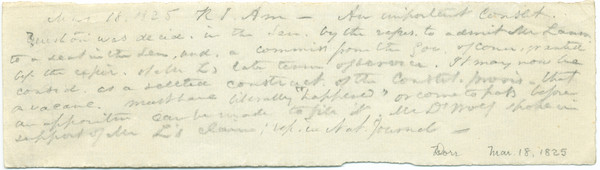 Mar 18, 1825 R I Am — An important Constit.
Question was decid. in the Sen. by the refus. to admit Mr Lanm
to a seat in the Sen. and, a commiss from the Gov. of Conn, granted
bef. the expir. of Mr L's late term of service. It may now be
consid. as a settled construct. of the Constit. provis. that
a vacanc. must have literally "happened" or come to pass before
an appointm can be made to fill it Mr D'Wolf spoke in
support of Mr L's claim; rep. in Nat. Journal —
Dorr Mar. 18, 1825